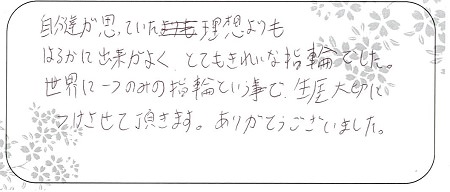 自分達が思っていた理想よりも
はるかに出来がよく、とてもきれいな指輪でした。
世界に一つのみの指輪という事で、生涯大切に
つけさせて頂きます。ありがとうございました。